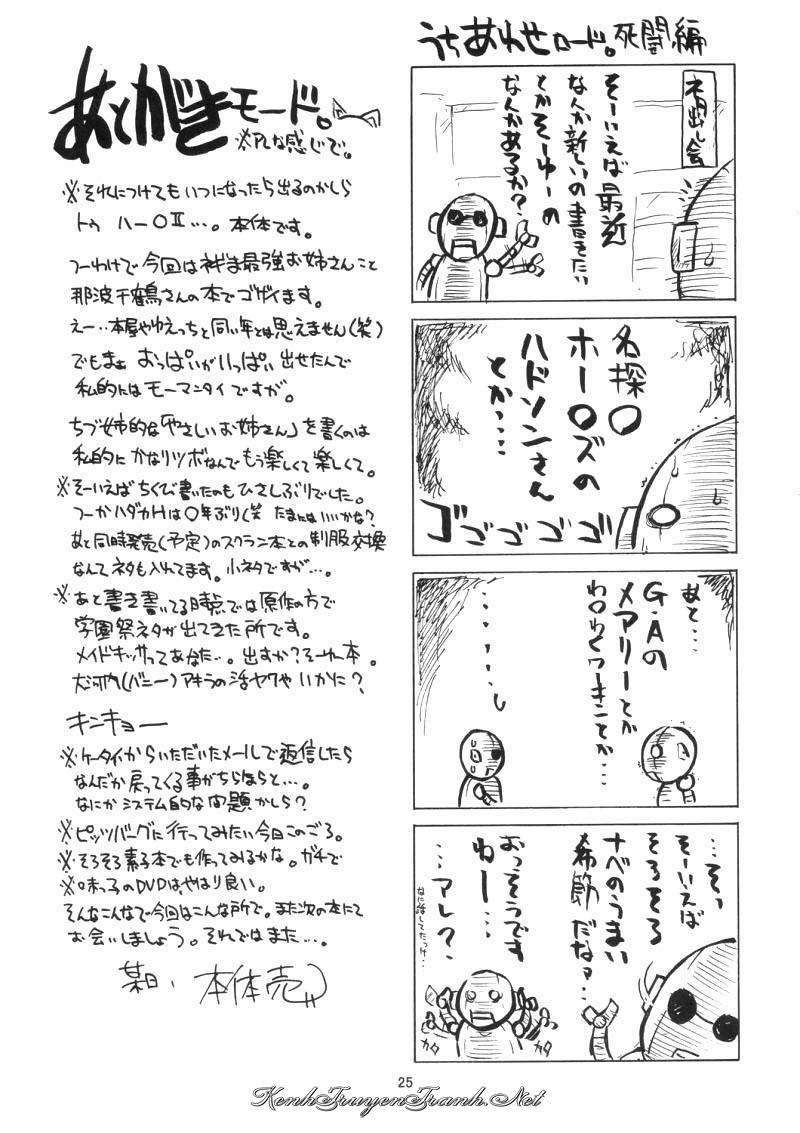 うちあわせロード。死闘編
ネタ出し会
そーいえば最近
なんか新しいの書きたい
とかそーゆーの
なんかあるか?
名探〇
ホー〇ズの
ハドソンさん
とか…
ゴゴゴゴゴ
あと…
G・Aの
メアリーとか
わ〇わくワーキンとか…
…そぅ
そーいえば
そろそろ
ナベのうまい
季節だなァ…
おっそうです
ねー…
…アレ?
なに話してたっけ…
カタ
カタ
あとがきモード。
※PLな感じで。
※それにつけてもいつになったら出るのかしら
トゥ ハー〇Ⅱ…。本体です。
つーわけで今回はネギま最強お姉さんこと
那波千鶴さんの本でゴザイます。
えー…本屋やゆえっちと同い年とは思えません(笑)
でもまぁ おっぱいがいっぱい出せたんで
私的にはモーマンタイですが。
ちづ姉的な「やさしいお姉さん」を書くのは
私的にかなりツボなんでもう楽しくて楽しくて。
※そーいえばちくび書いたのもひさしぶりでした。
つーかハダカHは〇年ぶり(笑 たまにはいいかな?
あと同時発売(予定)のスクラン本との制服交換
なんてネタも入れてます。小ネタですが…。
※あと書き書いてる時点では原作の方で
学園祭ネタが出てきた所です。
メイドキッサってあなた…。出すか?そーゆー本。
大河内(バニー)アキラの活ヤクやいかに?
キンキョー
※ケータイからいただいたメールで返信したら
なんだか戻ってくる事がちらほらと…。
なにかシステム的な問題かしら?
※ピッツバーグに行ってみたい今日このごろ。
※そろそろ素子本でも作ってみるかな。ガチで
※味っ子のDVDはやはり良い。
そんなこんなで今回はこんな所で。また次の本にて
お会いしましょう。それではまた…。
某日、本体売
25
KenhTruyenTranh.Net